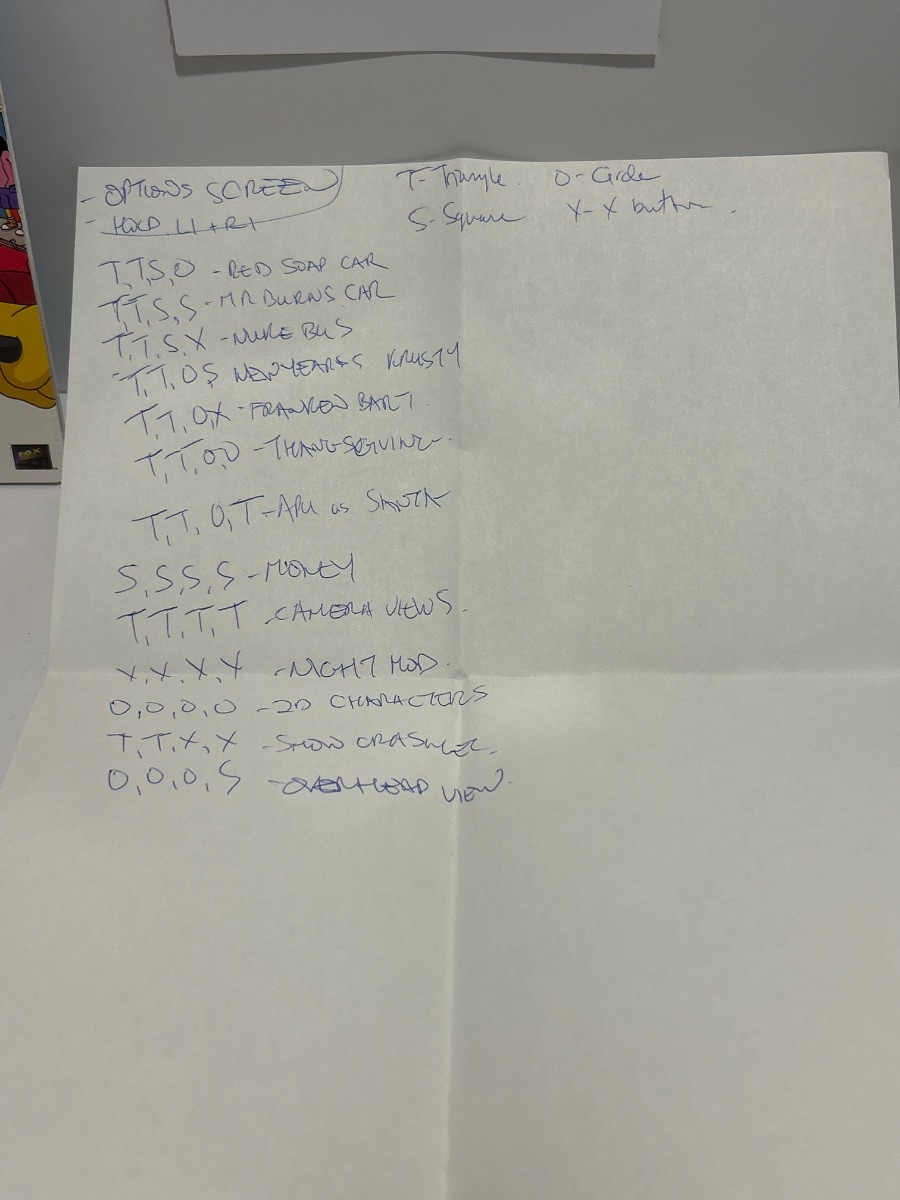 - OPTIONS SCREEN
- HOLD L1+R1
T-Triangle. O-Circle
S-Square X-X button.
T,T,S,O - RED SOAP CAR
T,T,S,S - MR BURNS CAR
T,T,S,X - NUKE BUS
T,T,O,S NEW YEARS KRUSTY
T,T,O,X - FRANKEN BART
T,T,O,O - THANGSGIVING.
T,T,O,T - APU as SANTA
S,S,S,S - MONEY
T,T,T,T - CAMERA VIEWS.
X,X,X,X - NIGHT MOD.
O,O,O,O - 2D CHARACTERS
T,T,X,X - SHOW
O,O,O,S - OVERHEAD VIEW.
FOX